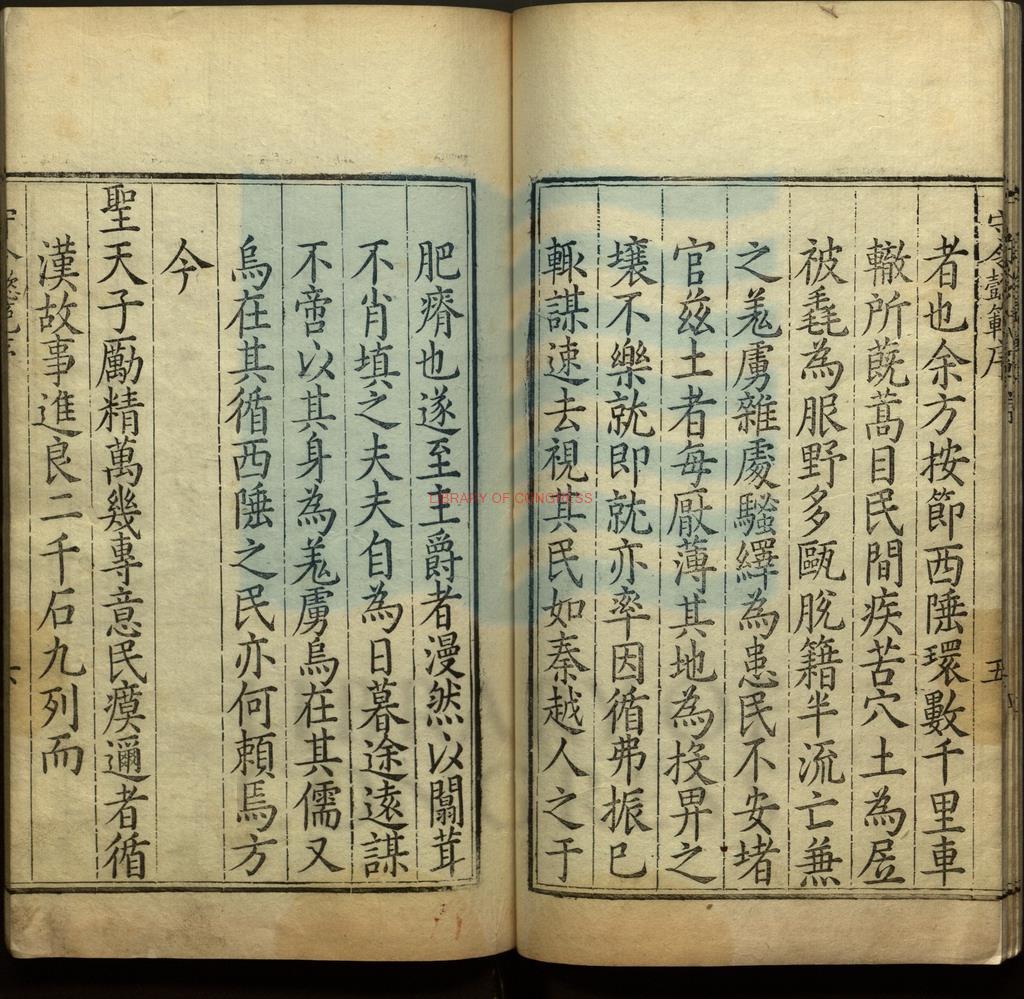 守令懿範序
五
者也余方按節西陲環數千里車
轍所蕝蒿目民間疾苦穴土為居
被毳為服野多甌脫籍半流亡兼
之羌虜雜處騷繹為患民不安堵
官茲土者每厭薄其地為投畀之
壤不樂就即就亦率因循弗振已
輒謀速去視其民如秦越人之于
肥瘠也遂至主爵者漫然以闒茸
不肖填之夫夫自為日暮途遠謀
不啻以其身為羌虜烏在其儒又
烏在其循西陲之民亦何賴焉方
今
聖天子勵精萬幾專意民瘼邇者循
漢故事進良二千石九列而
LIBRARY OF CONGRESS